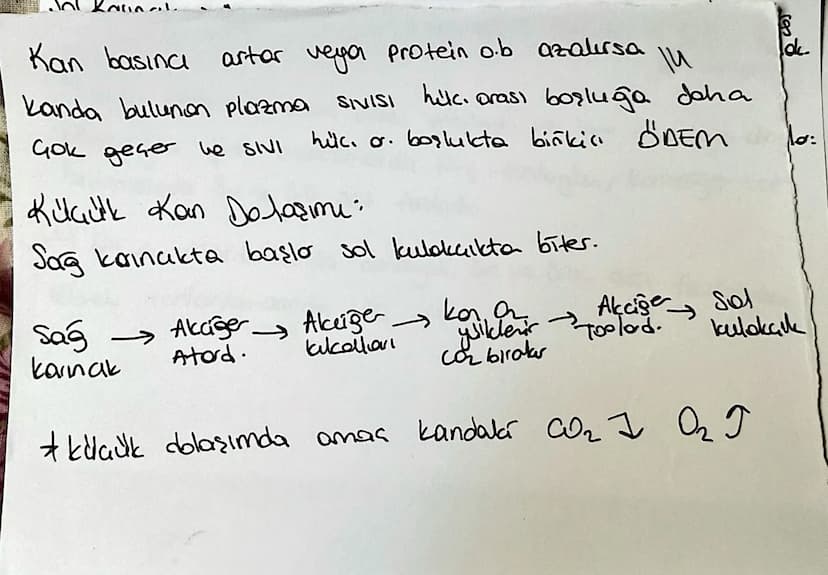 Kan basıncı artar veya protein o.b azalırsa
kanda bulunan plazma sıvısı hüc. arası boşluğa daha
çok geçer ve sıvı hüc. a. boşlukta birikici ÖDEM
Küçük Kan Dolaşımı:
Sağ karıncıkta başlar sol kulakcıkta biter.
Sağ karıncık → Akciğer Atard. → Akciğer kılcalları → kan O2 yüklenir CO2 bırakır → Akciğer Toplard. → Sol kulakcık
* küçük dolaşımda amaç kandaki CO2 ↓ O2 ↑